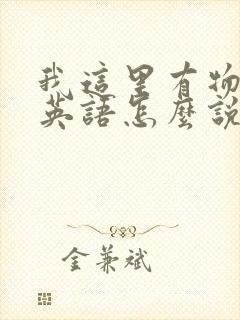 我這里有物
英語怎麼說
金兼斌